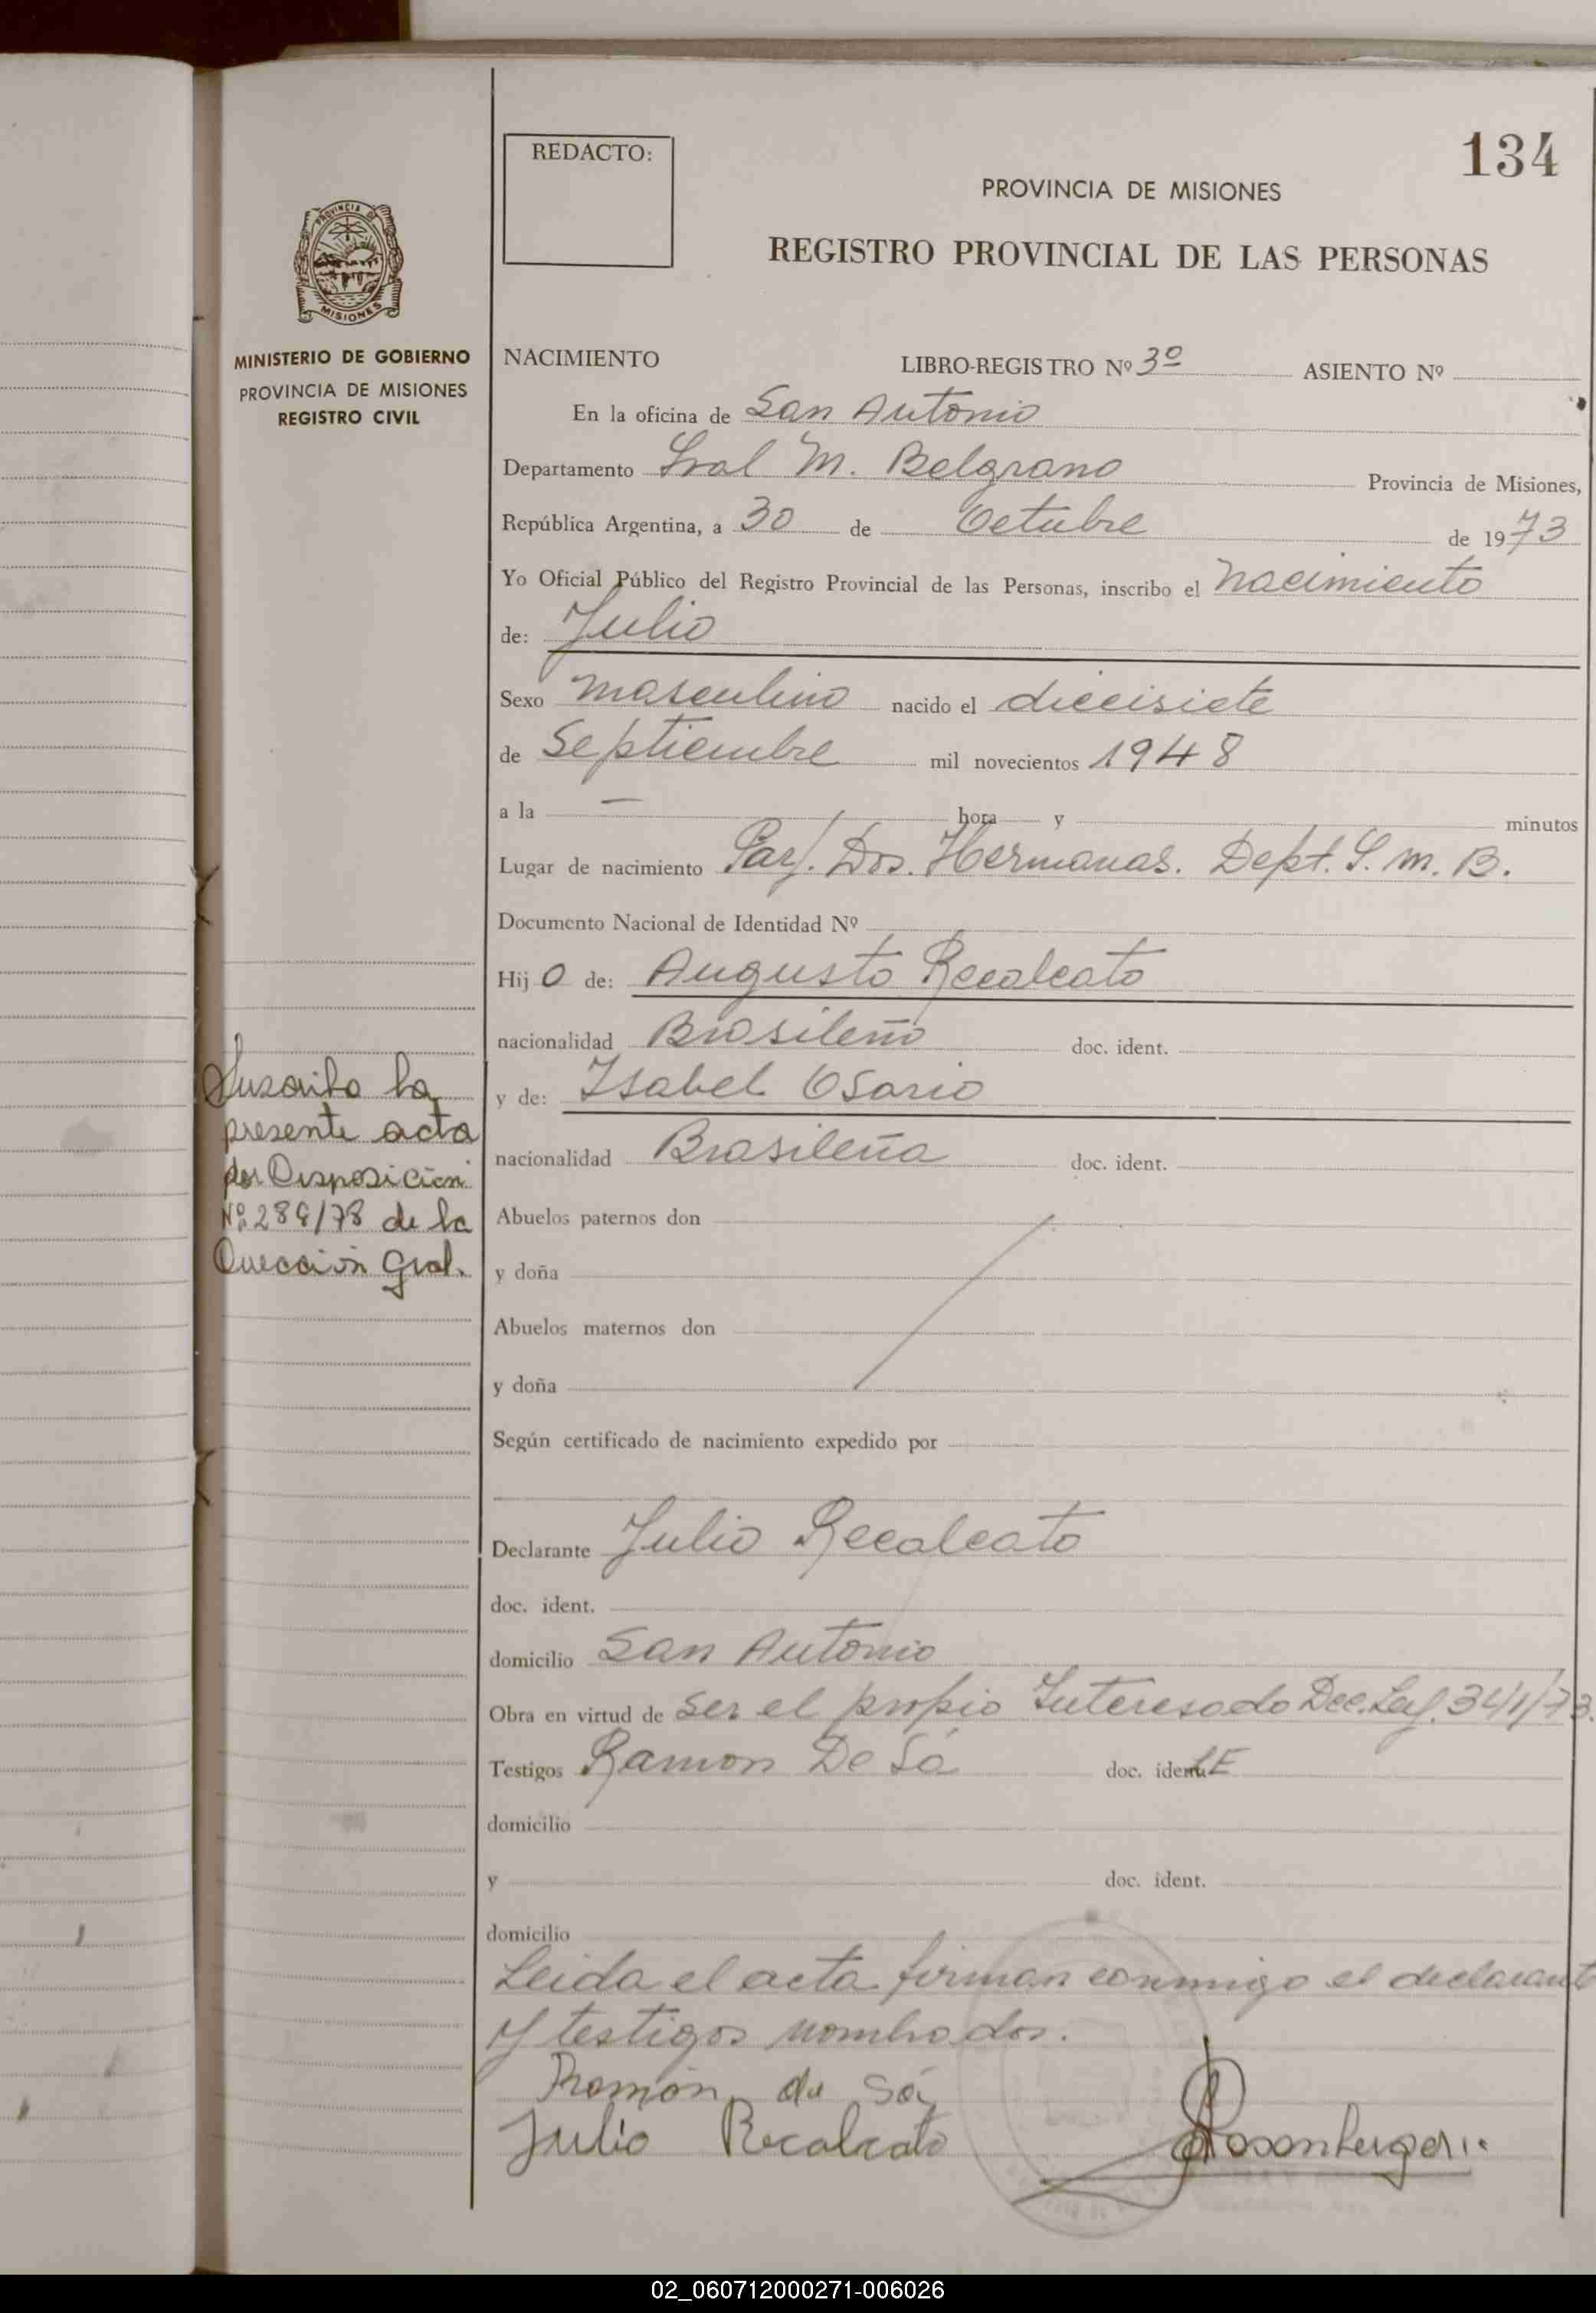 134
REDACTO:
PROVINCIA DE MISIONES
REGISTRO PROVINCIAL DE LAS PERSONAS
PROVINCIA DE
MISIONES
MINISTERIO DE GOBIERNO
PROVINCIA DE MISIONES
REGISTRO CIVIL
NACIMIENTO LIBRO-REGISTRO Nº 3º ASIENTO Nº
En la oficina de San Antonio
Departamento Gral M. Belgrano Provincia de Misiones,
República Argentina, a 30 de Octubre de 1973
Yo Oficial Público del Registro Provincial de las Personas, inscribo el nacimiento
de: Julio
Sexo masculino nacido el diecisiete
de Septiembre mil novecientos 1948
a la — hora y minutos
Lugar de nacimiento Parj. Dos. Hermanas. Dept. G. M. B.
Documento Nacional de Identidad Nº
Hijo de: Augusto Recalcato
nacionalidad Brasileño doc. ident.
y de: Isabel Osorio
nacionalidad Brasileña doc. ident.
Suscribo la
presente acta
por Disposicion
Nº 289/78 de la
Dirección Gral.
Abuelos paternos don
y doña
Abuelos maternos don
y doña
Según certificado de nacimiento expedido por
Declarante Julio Recalcato
doc. ident.
domicilio San Antonio
Obra en virtud de ser el propio Interesado Dec. Ley. 341/73.
Testigos Ramon De Sá doc. ident. LE
domicilio
y doc. ident.
domicilio
Leida el acta firman conmigo el declarante
y testigos nombrados.
Ramón de Sá
Julio Recalcato
Rosenberger
02_060712000271-006026